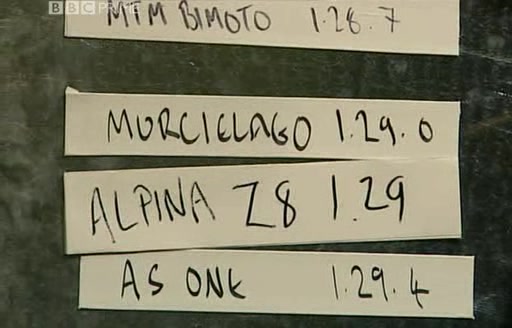 BBC PRIME
MTM BIMOTO 1.28.7
MURCIELAGO 1.29.0
ALPINA Z8 1.29
AS ONE 1.29.4